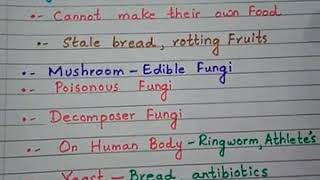 •- Cannot make their own Food
•- Stale bread, rotting Fruits
•- Mushroom - Edible Fungi
•- Poisonous Fungi
•- Decomposer Fungi
•- On Human Body - Ringworm, Athlete's
Yeast - Bread antibiotics